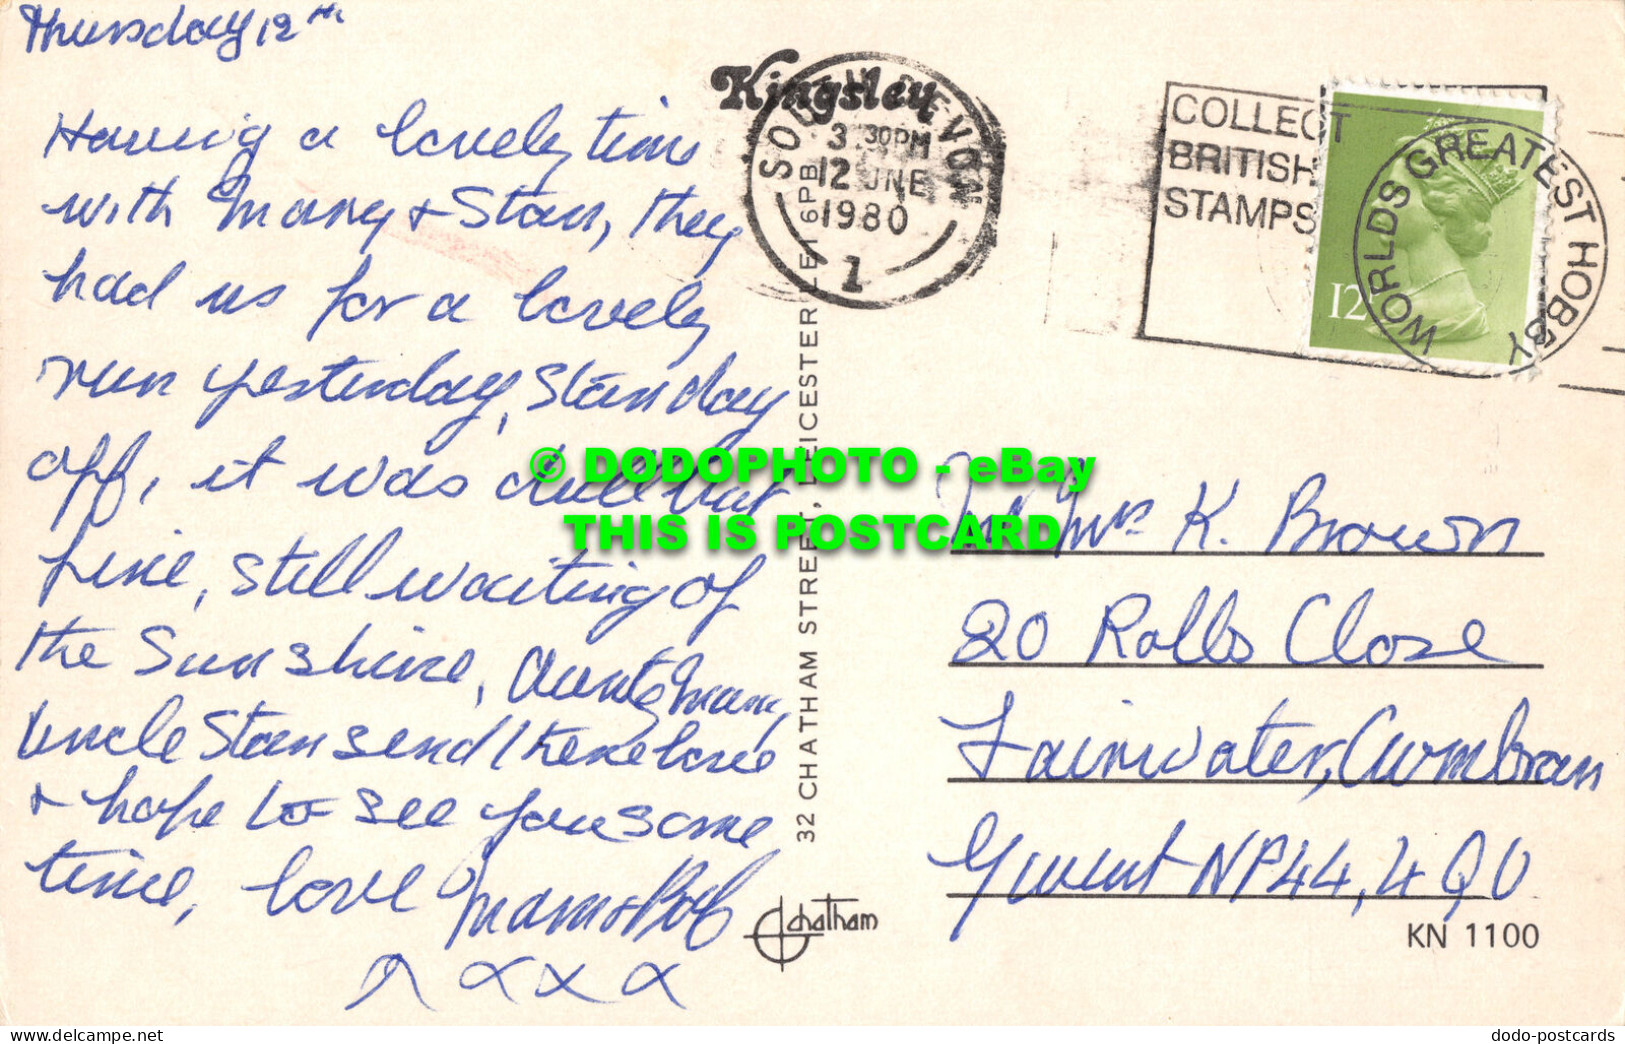 Thursday 12th
Having a lovely time
with Mary & Stan, they
had us for a lovely
run yesterday, Stan day
off, it was dull but
fine, still waiting of
the Sunshine, Aunty Mary,
Uncle Stan send their love
& hope to see you some
time, love Mam & Bob
x x x x
Kingsley
SOUTH DEVON
3.30PM
12 JNE
1980
1
COLLECT
BRITISH
STAMPS
WORLDS GREATEST HOBBY
12
32 CHATHAM STREET, LEICESTER LE1 6PB
© DODOPHOTO - eBay
THIS IS POSTCARD
Mrs K. Brown
20 Rolls Close
Fairwater, Cwmbran
Gwent NP44, 4QU
chatham
KN 1100
dodo-postcards